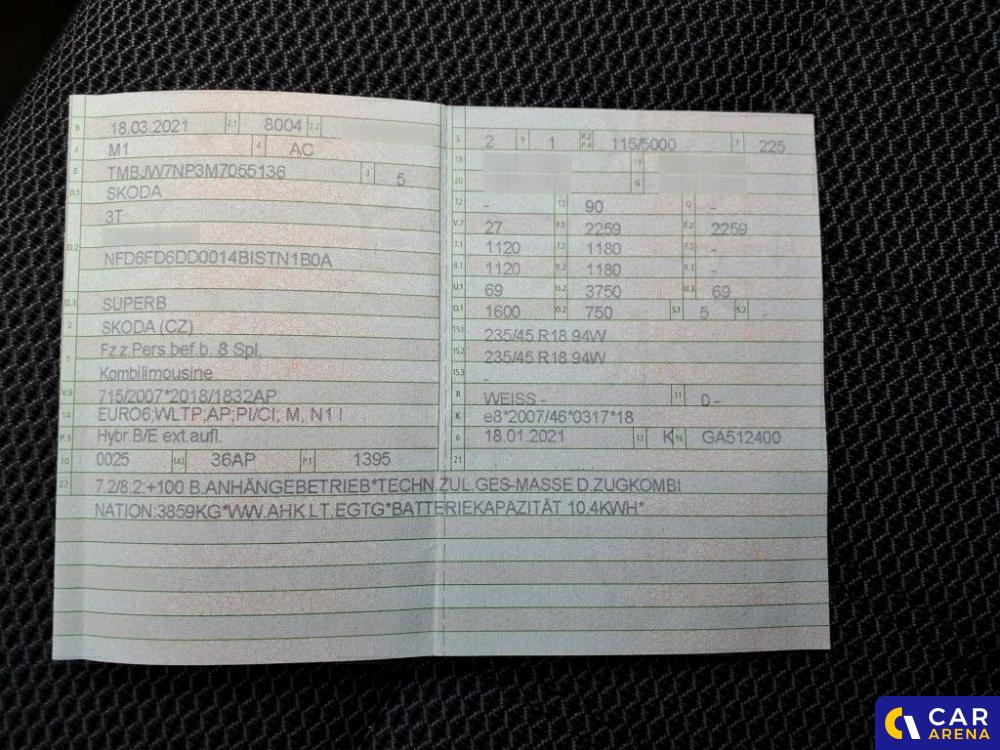 B 18.03.2021 2.1 8004 2.2
J M1 4 AC
E TMBJW7NP3M7055136 3 5
D.1 SKODA
3T
D.2
NFD6FD6DD0014BISTN1B0A
D.3 SUPERB
2 SKODA (CZ)
5 Fz.z.Pers.bef.b. 8 Spl.
Kombilimousine
V.9 715/2007*2018/1832AP
14 EURO6;WLTP;AP;PI/CI; M, N1 I
P.3 Hybr.B/E ext.aufl.
10 0025 14.1 36AP P.1 1395
L 2 9 1 P.2 P.4 115/5000 T 225
18 19
20 G
12 - 13 90 Q -
V.7 27 F.1 2259 F.2 2259
7.1 1120 7.2 1180 7.3 -
8.1 1120 8.2 1180 8.3 -
U.1 69 U.2 3750 U.3 69
O.1 1600 O.2 750 S.1 5 S.2 -
15.1 235/45 R18 94W
15.2 235/45 R18 94W
15.3 -
R WEISS - 11 0 -
K e8*2007/46*0317*18
6 18.01.2021 17 K 16 GA512400
21
22 7.2/8.2:+100 B.ANHÄNGEBETRIEB*TECHN.ZUL.GES-MASSE D.ZUGKOMBI
NATION:3859KG*VWV.AHK LT. EGTG*BATTERIEKAPAZITÄT 10,4KWH*
CAR
ARENA